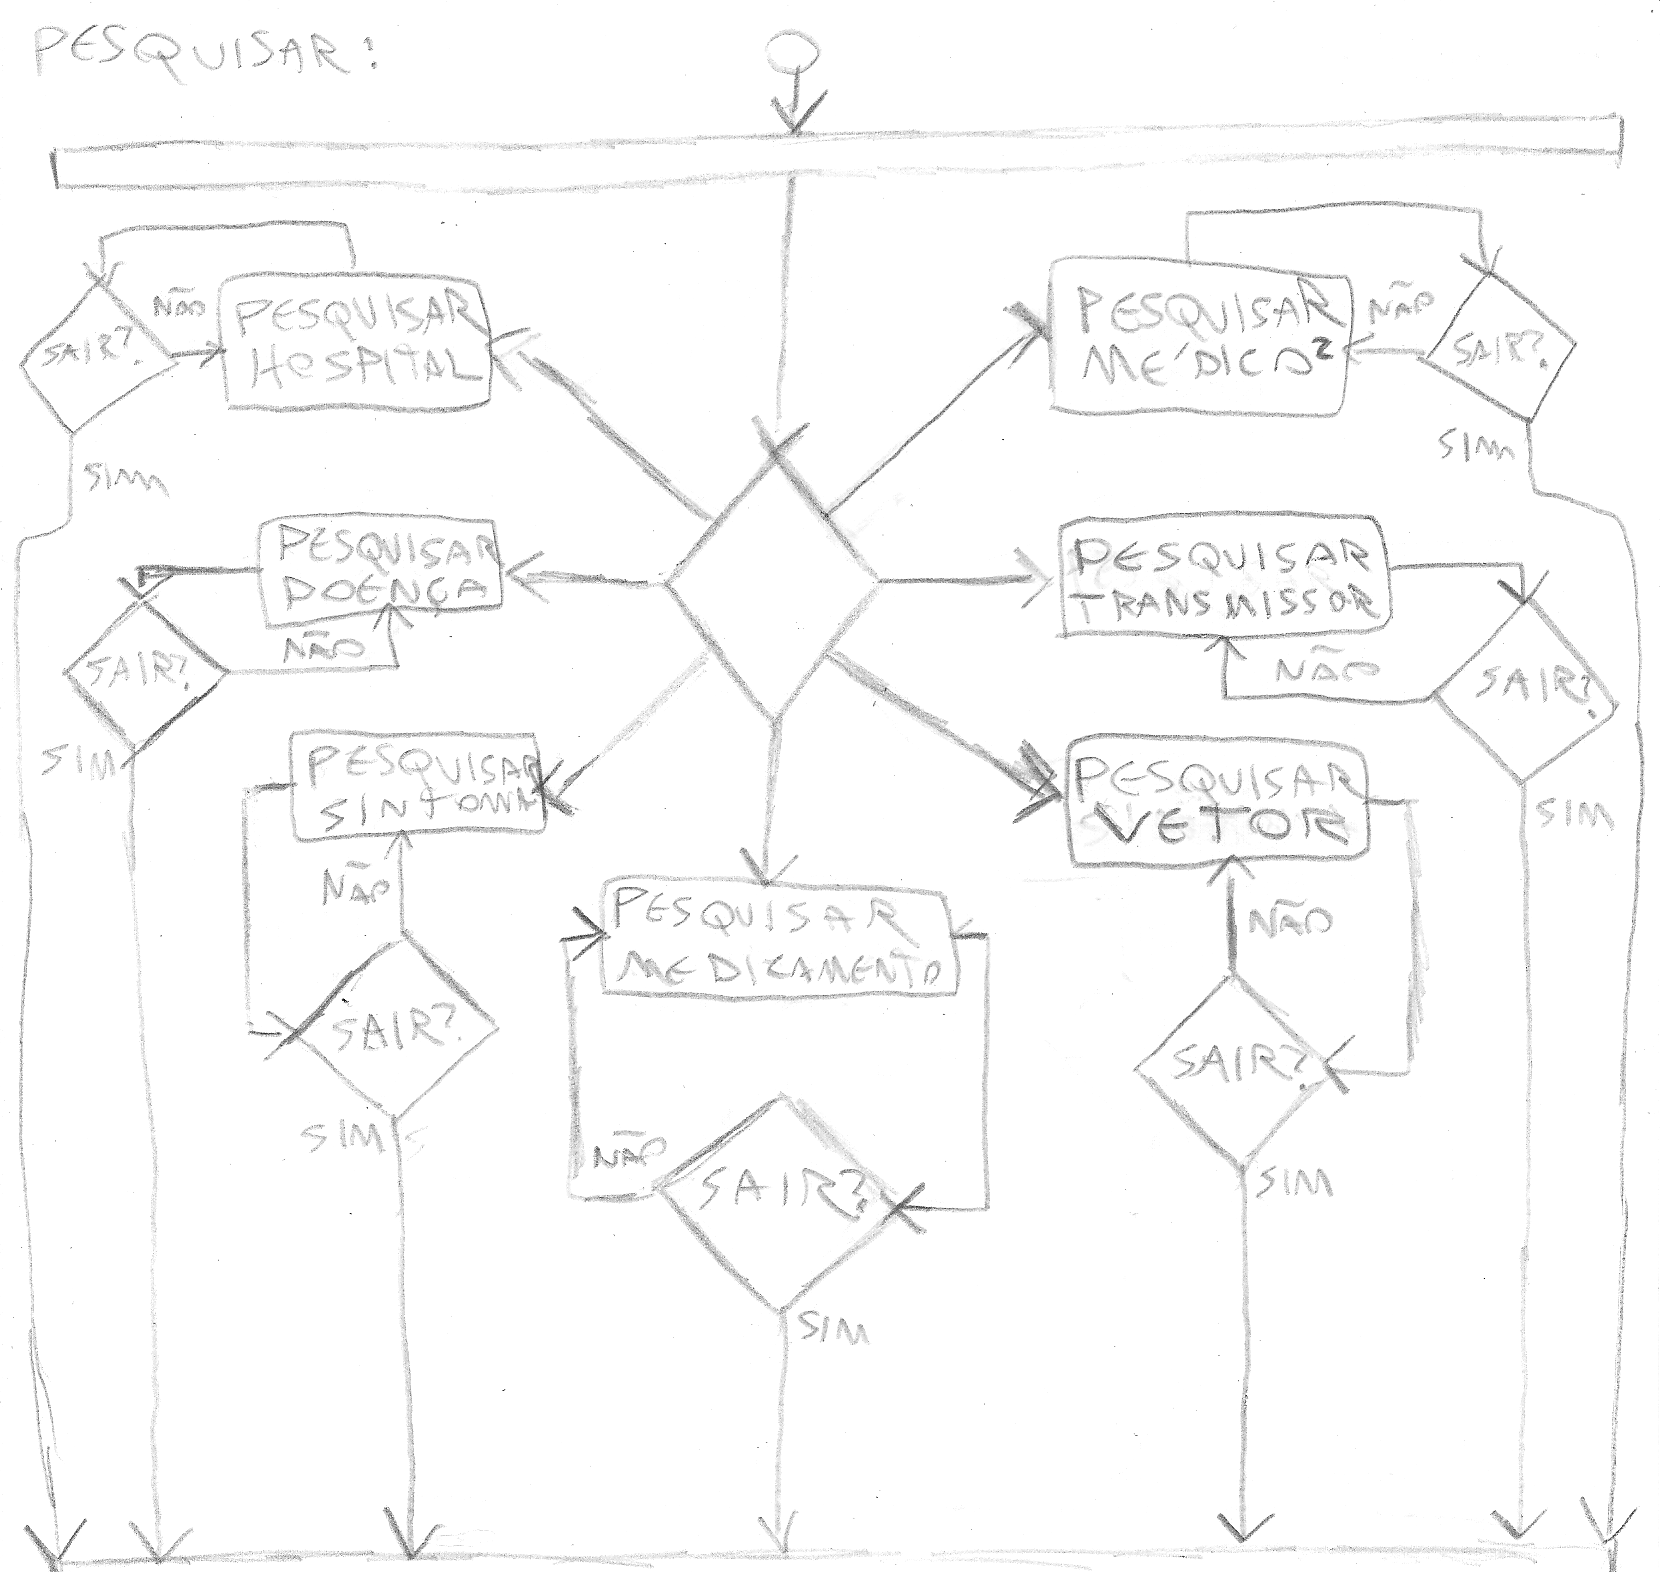 PESQUISAR:
NÃO
PESQUISAR
HOSPITAL
SAIR?
SIM
PESQUISAR
MÉDICO
NÃO
SAIR?
SIM
PESQUISAR
DOENÇA
NÃO
SAIR?
SIM
PESQUISAR
TRANSMISSOR
NÃO
SAIR?
SIM
PESQUISAR
SINTOMA
NÃO
SAIR?
SIM
PESQUISAR
VETOR
NÃO
SAIR?
SIM
PESQUISAR
MEDICAMENTO
NÃO
SAIR?
SIM